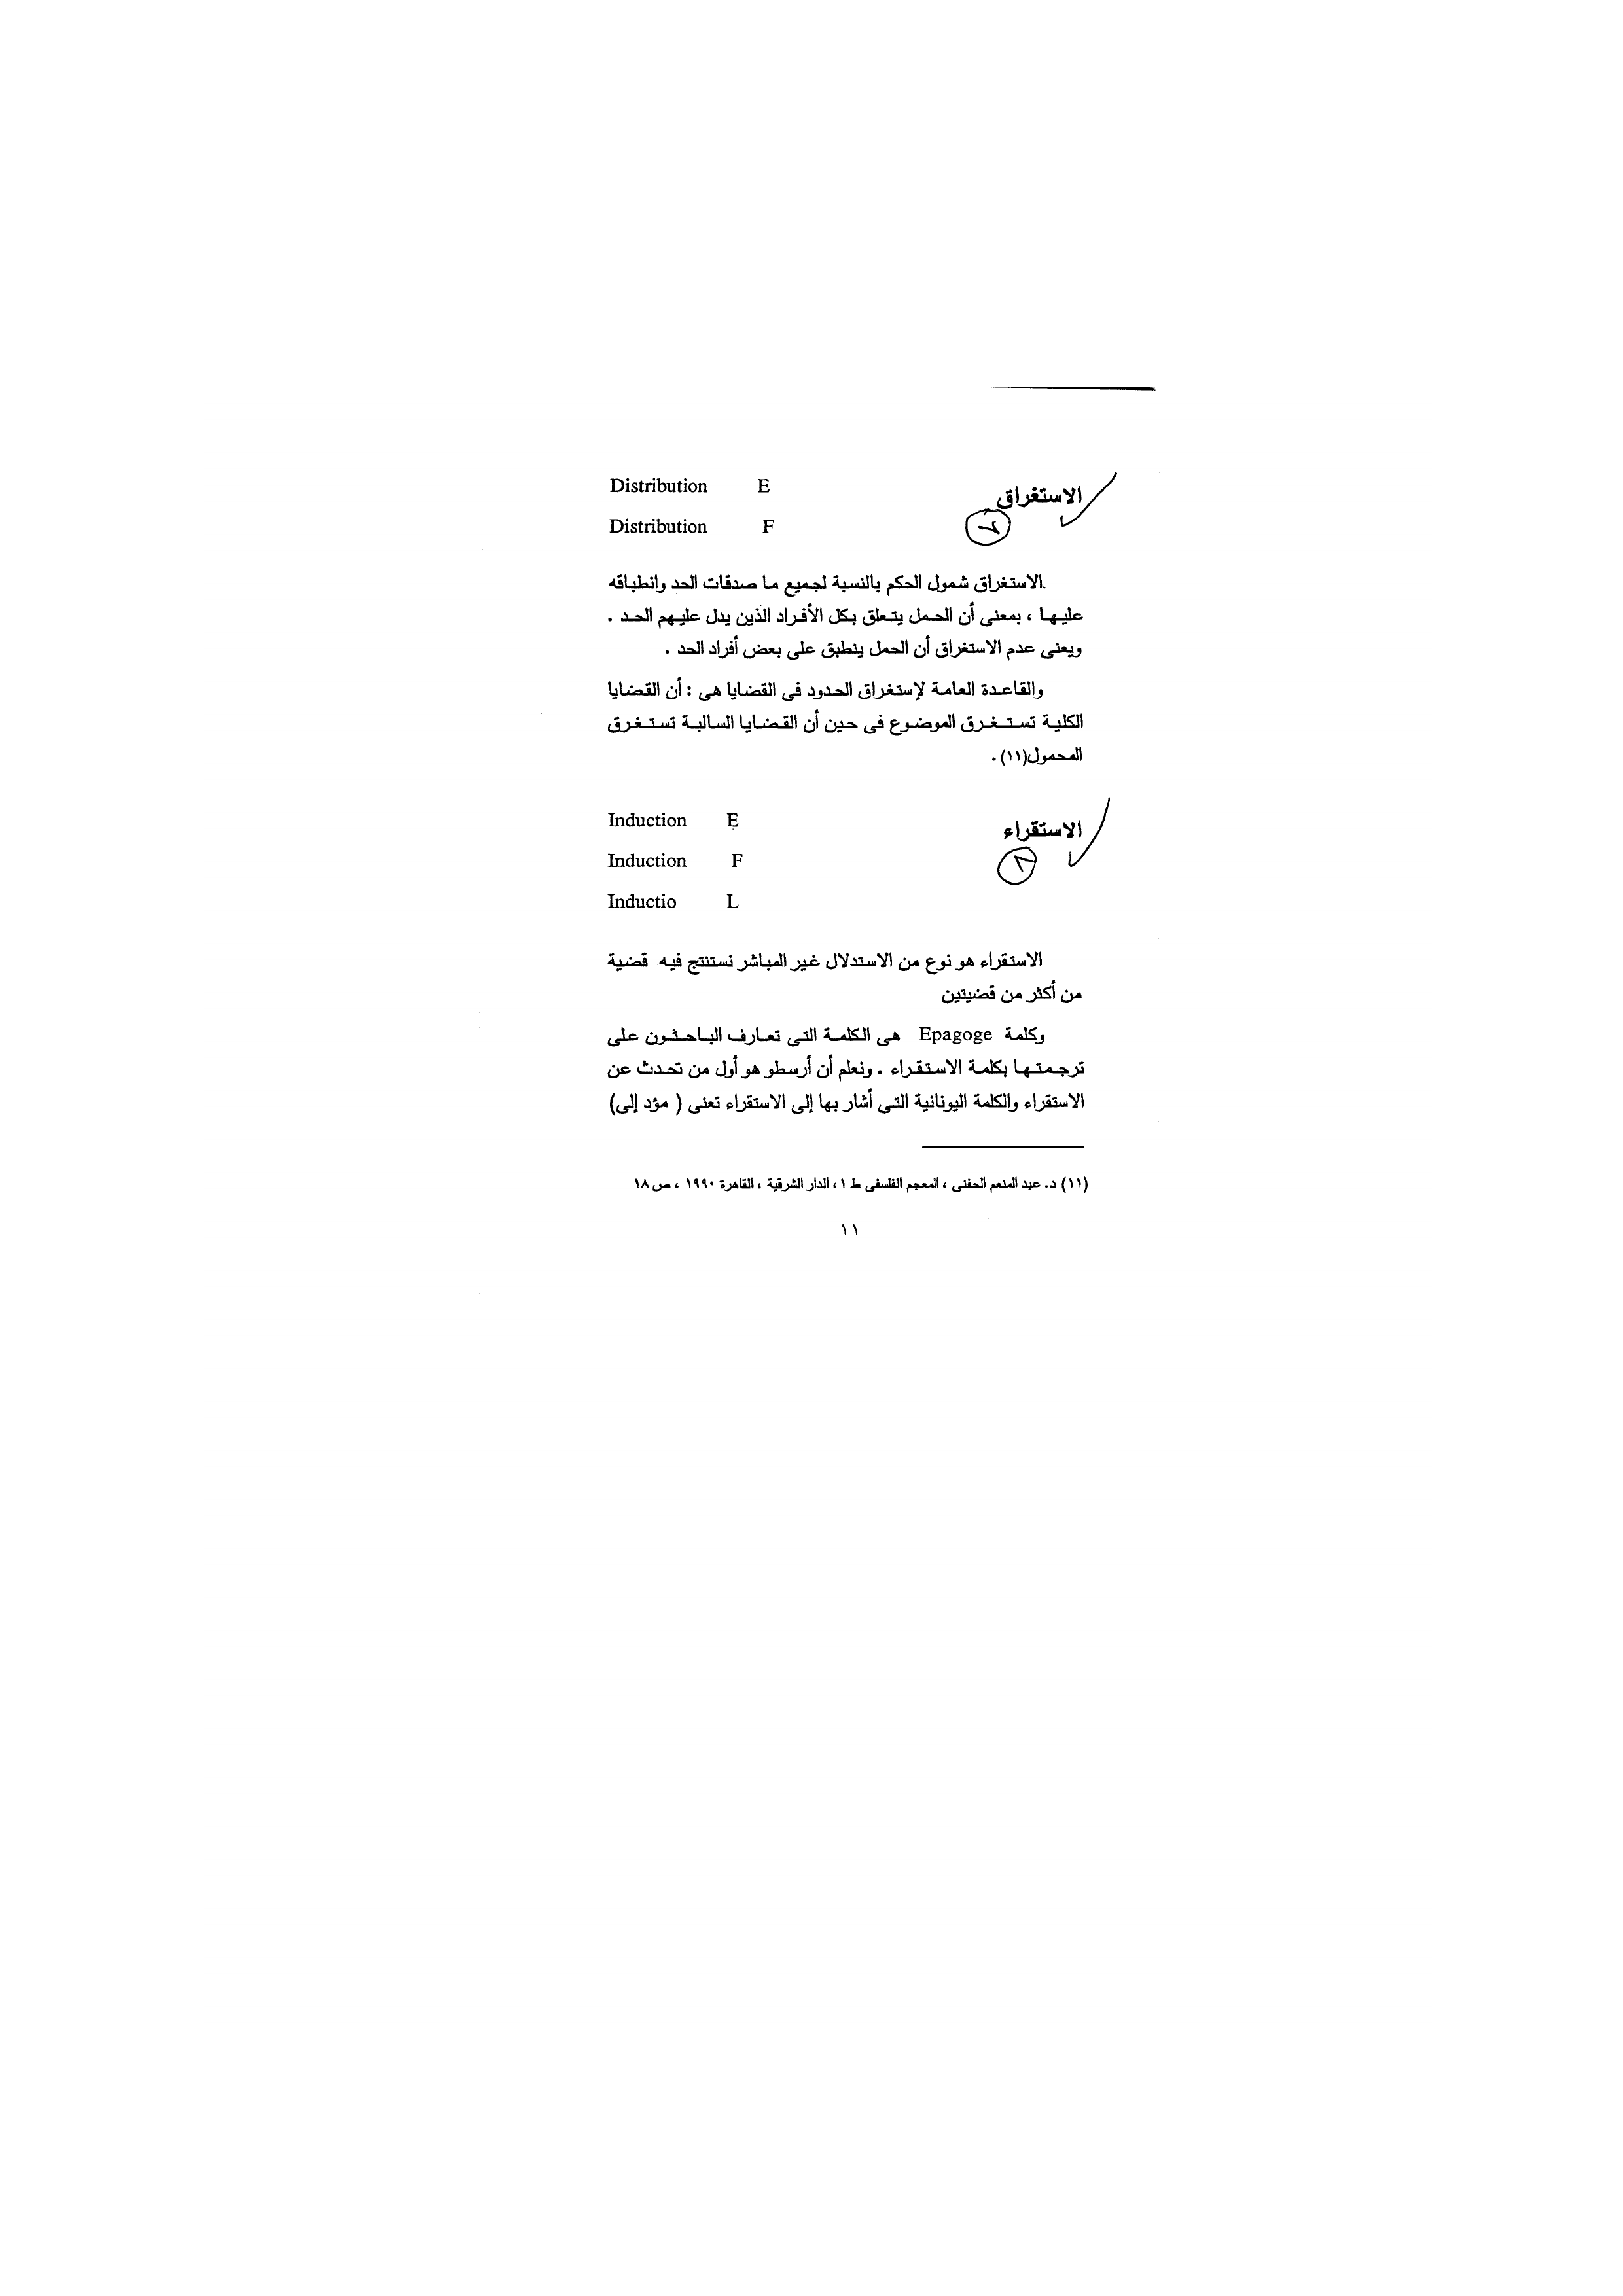 الاستغراق Distribution E
٧ Distribution F
الاستغراق شمول الحكم بالنسبة لجميع ما صدقات الحد وانطباقه
عليها ، بمعنى أن الحمل يتعلق بكل الأفراد الذين يدل عليهم الحد .
ويعنى عدم الاستغراق أن الحمل ينطبق على بعض أفراد الحد .
والقاعدة العامة لإستغراق الحدود فى القضايا هى : أن القضايا
الكلية تستغرق الموضوع فى حين أن القضايا السالبة تستغرق
المحمول(١١) .
الاستقراء Induction E
٨ Induction F
Inductio L
الاستقراء هو نوع من الاستدلال غير المباشر نستنتج فيه قضية
من أكثر من قضيتين
وكلمة Epagoge هى الكلمة التى تعارف الباحثون على
ترجمتها بكلمة الاستقراء . ونعلم أن أرسطو هو أول من تحدث عن
الاستقراء والكلمة اليونانية التى أشار بها إلى الاستقراء تعنى ( مؤد إلى)
(١١) د. عبد المنعم الحفنى ، المعجم الفلسفى ط ١ ، الدار الشرقية ، القاهرة ١٩٩٠ ، ص ١٨
١١